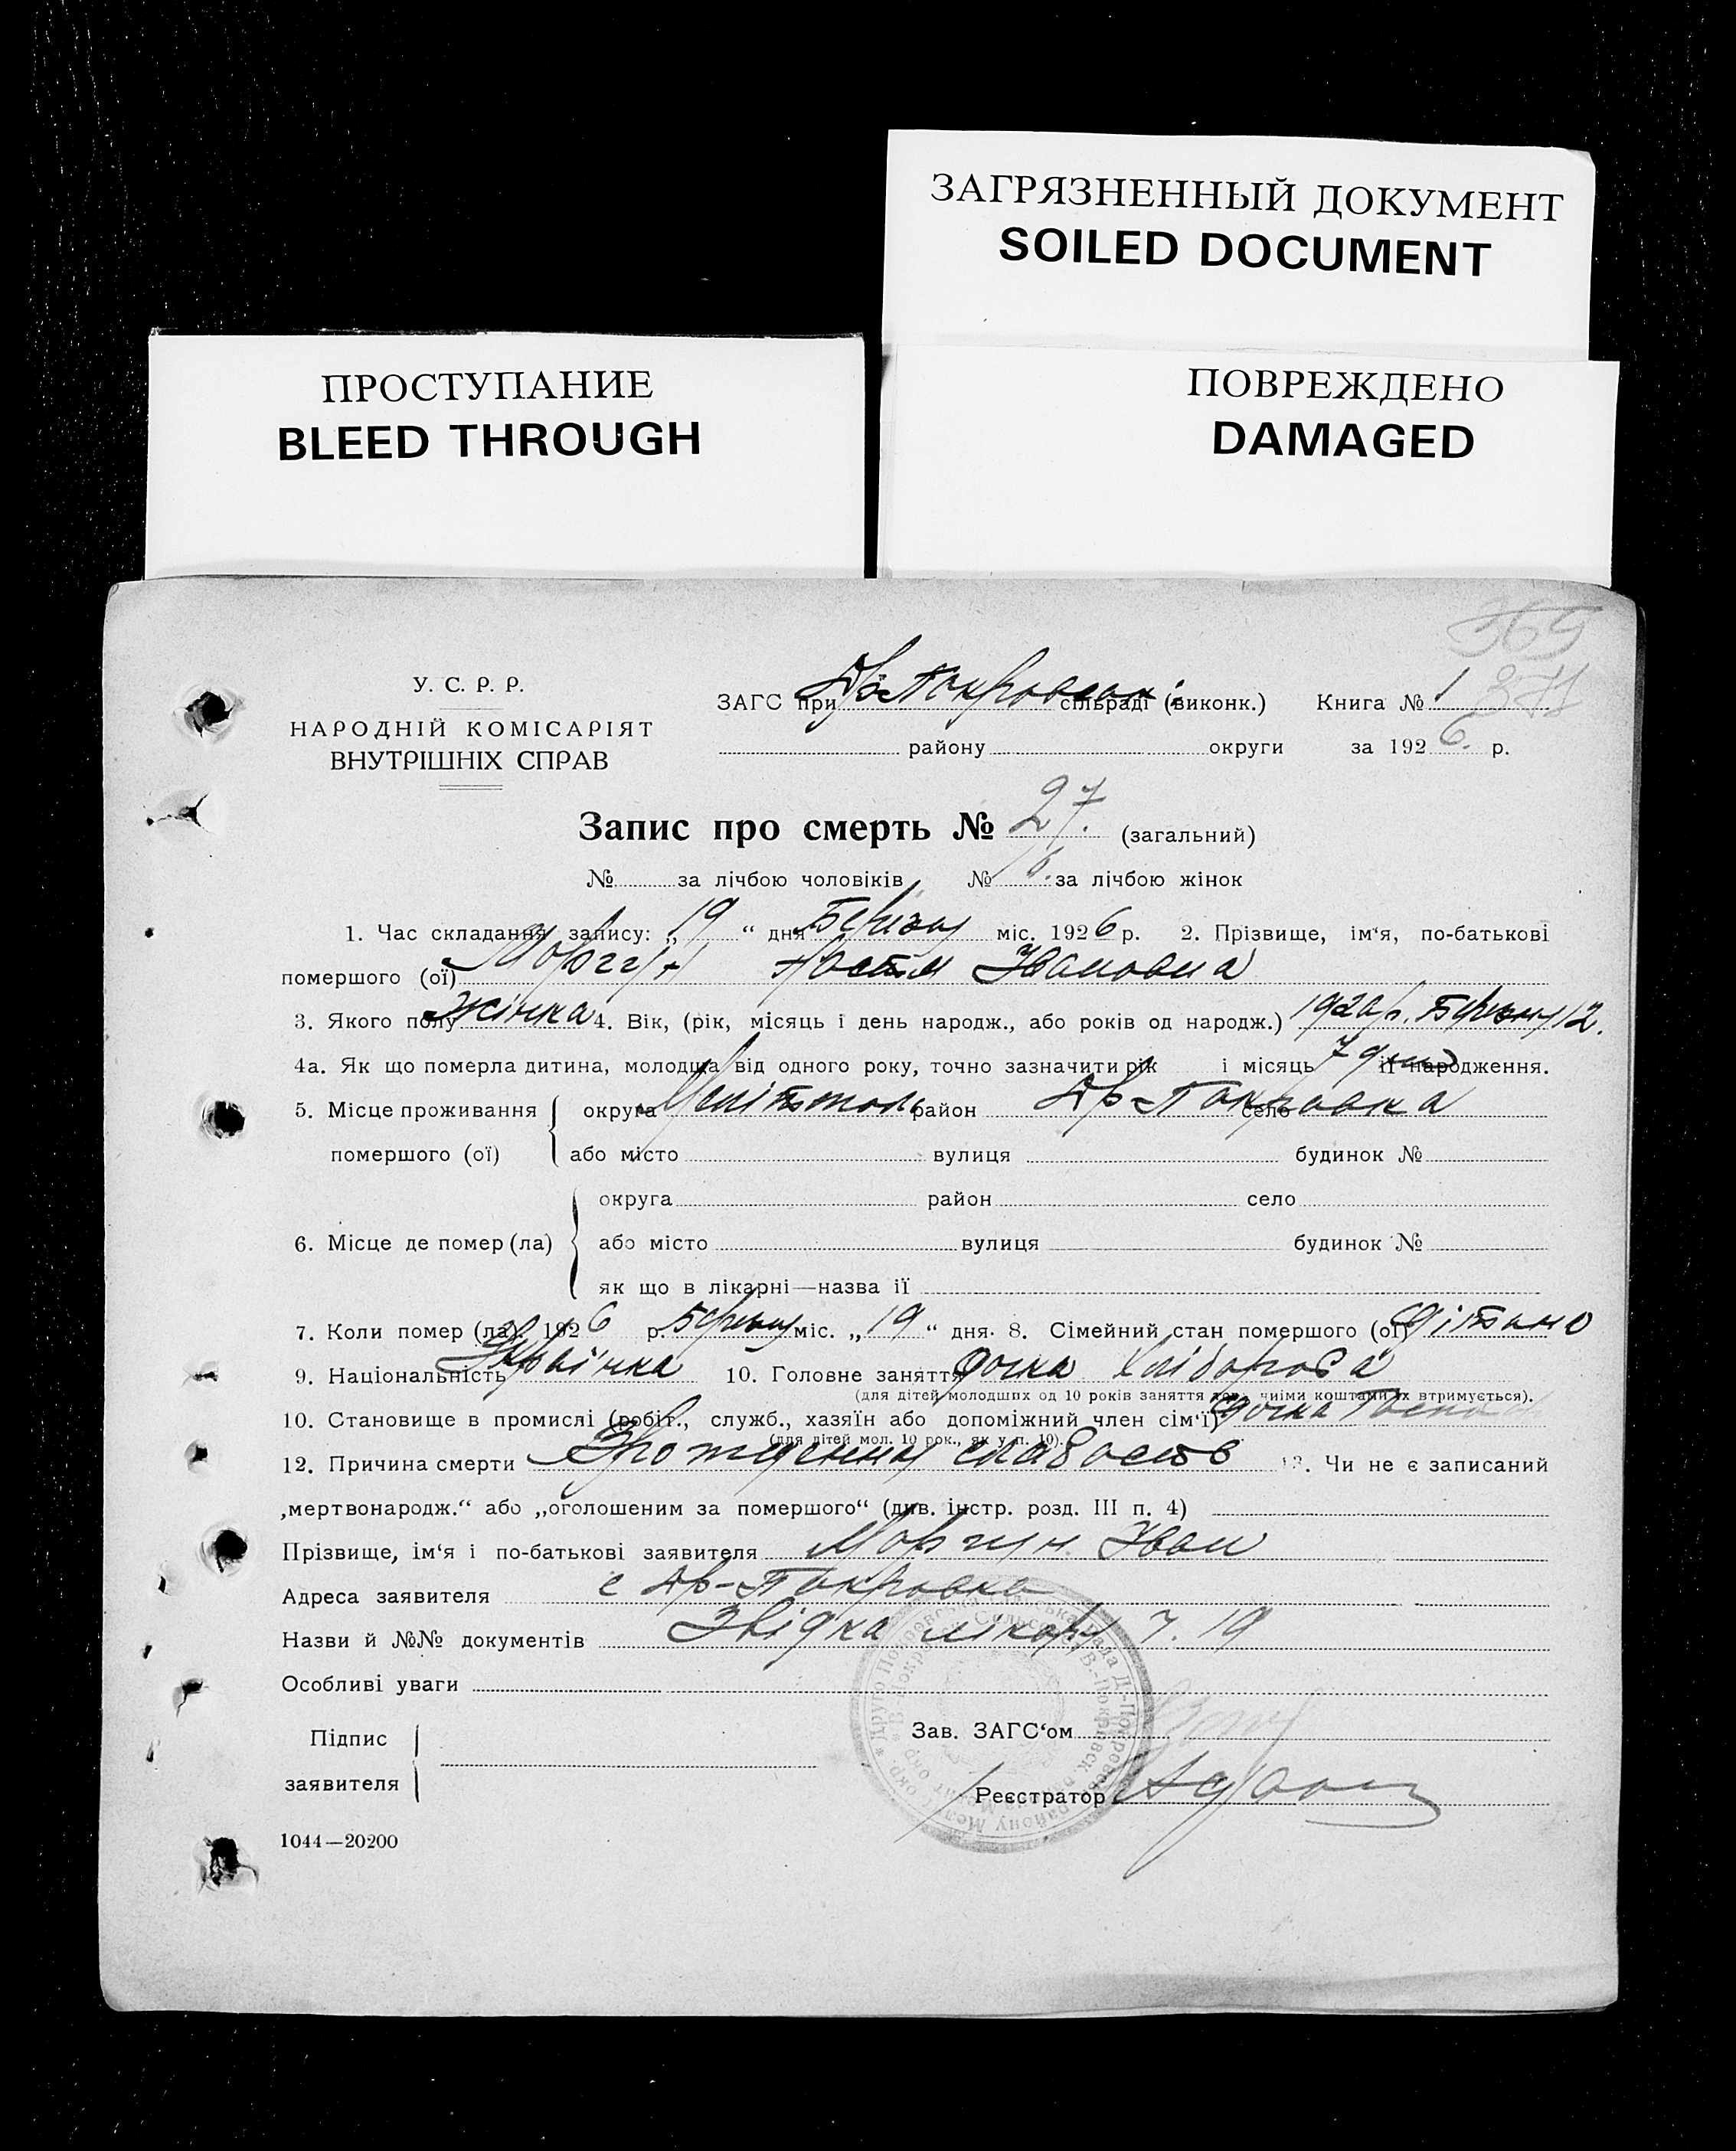 ЗАГРЯЗНЕННЫЙ ДОКУМЕНТ
SOILED DOCUMENT
ПРОСТУПАНИЕ
BLEED THROUGH
ПОВРЕЖДЕНО
DAMAGED
369
371
У. С. Р. Р.
НАРОДНІЙ КОМІСАРІЯТ
ВНУТРІШНІХ СПРАВ
ЗАГС при Др-Покровськ. сільраді (виконк.) Книга № 1
району округи за 1926 р.
Запис про смерть № 27. (загальний)
№ за лічбою чоловіків № 6. за лічбою жінок
1. Час складання запису: „19“ дня Березня міс. 1926 р. 2. Прізвище, ім‘я, по-батькові
помершого (ої) Моргун Настя Івановна
3. Якого полу Жінка 4. Вік, (рік, місяць і день народж., або років од народж.) 192 р. Березня 12.
4а. Як що померла дитина, молодша від одного року, точно зазначити рік і місяць 7 днів її народження.
5. Місце проживання округа Мелітополь район Др-Покровка село
помершого (ої) або місто вулиця будинок №
округа район село
6. Місце де помер (ла) або місто вулиця будинок №
як що в лікарні—назва її
7. Коли помер (ла). 1926 р. Березня міс. „19“ дня. 8. Сімейний стан помершого (ої) дітина
9. Національність Українка 10. Головне заняття дочка Хлібороба
(для дітей молодших од 10 років заняття того, чиїми коштами їх втримується).
10. Становище в промислі (робіт., служб., хазяїн або допоміжний член сім‘ї) дочка
(для дітей мол. 10 рок., як у п. 10).
12. Причина смерти слабость 13. Чи не є записаний
„мертвонародж.“ або „оголошеним за помершого“ (див. інстр. розд. III п. 4)
Прізвище, ім‘я і по-батькові заявителя Моргун Іван
Адреса заявителя с Др-Покровка
Назви й №№ документів Звідка лікаря 7. 19
Особливі уваги
Підпис
заявителя
Зав. ЗАГС‘ом
Реєстратор
1044—20200